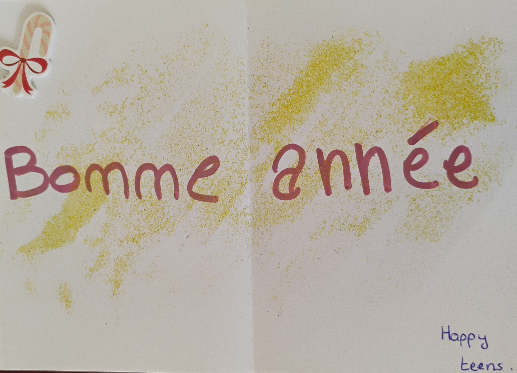 Bomme année
Happy
teens.